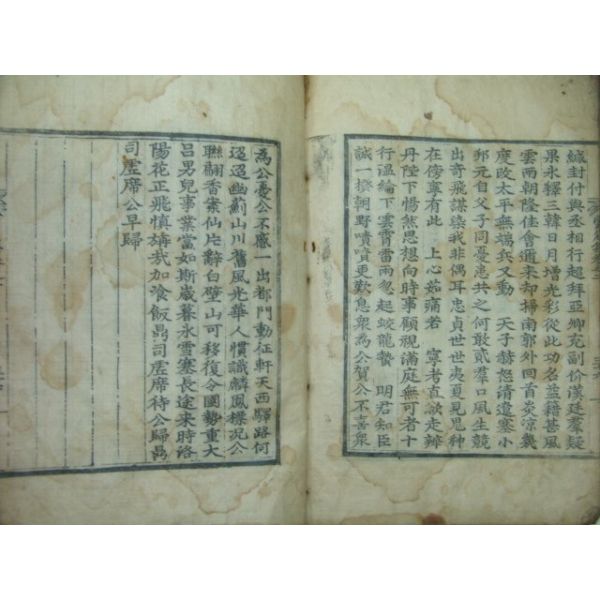 緘封付與丞相行超拜亞卿充副价漢廷羣疑
果永釋三韓日月增光彩從此功名益籍甚風
雲兩朝隆佳會邇來却掃南郭外回首炎涼幾
度改太平無端兵又動 天子赫怒請遺塞小
邦元自父子同憂患共之何敢貳羣口風生競
出奇飛謀染我非偶耳忠貞世世夷夏見思種
在傍寧有此 上心茹痛者 寧考直欲走辨
丹陛下惕然思想向時事顧視滿庭無可者十
行溫綸下雲霄雷雨忽起蛟龍蟄 明君知臣
誠一機朝野嘖嘖更歎息衆為公賀公不喜衆
為公憂公不慼一出都門動征軒天西驛路何
迢迢幽薊山川舊風光華人慣識麟風標況公
聯翩香案仙片辭白璧山可移復令國勢重大
呂男兒事業當如斯歲暮氷雪塞長途来時洛
陽花正飛慎旃哉加飡飯鼎司虛席待公歸鼎
司虛席公早歸